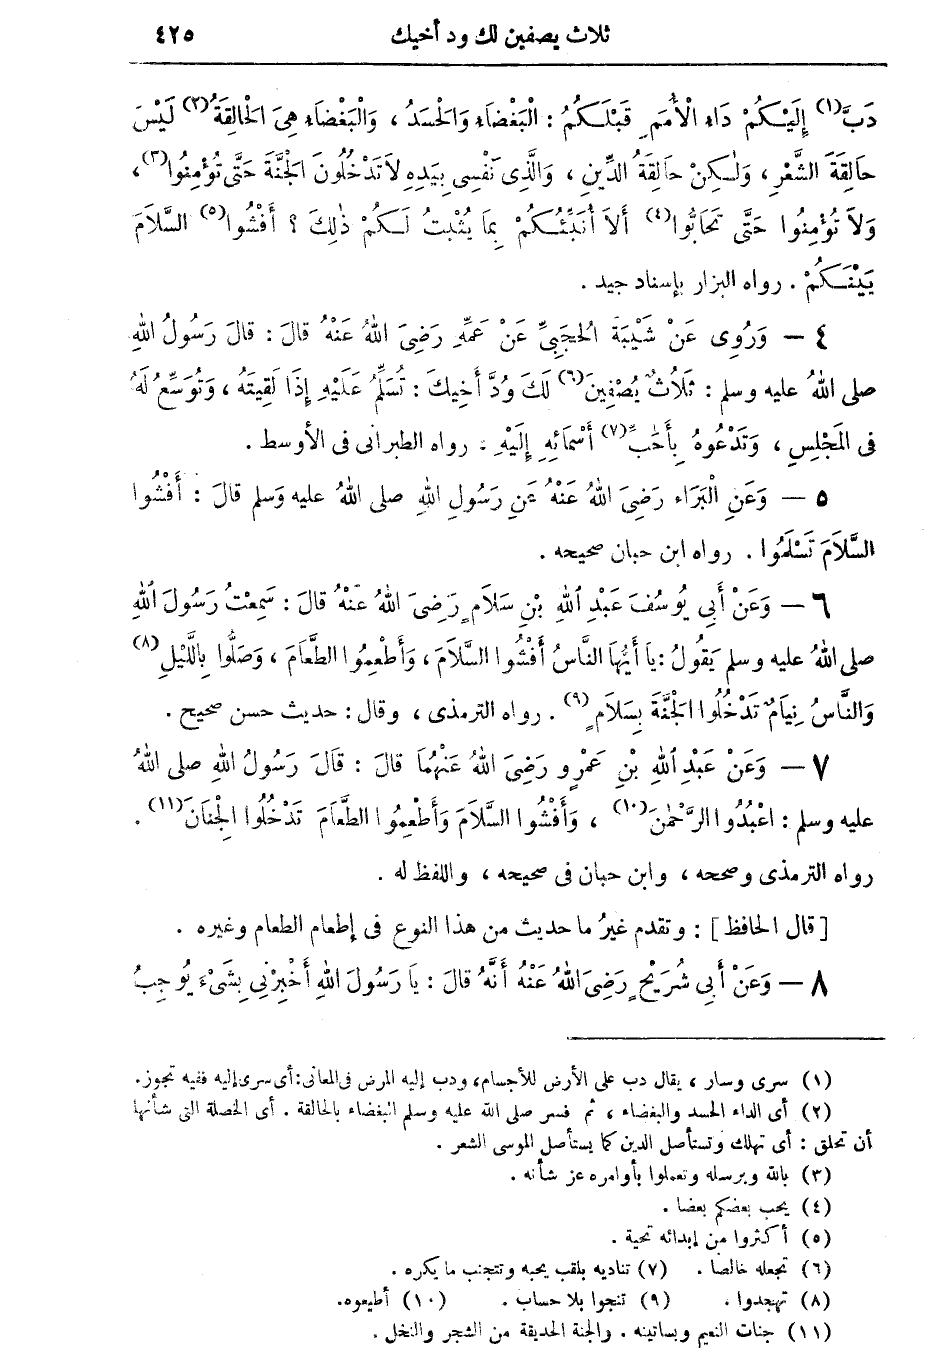 ثلاث يصفين لك ود أخيك ٤٢٥
دَبَّ(١) إِلَيْكُمْ دَاءُ الْأُمَمِ قَبْلَكُمُ : الْبَغْضَاءُ وَالْحَسَدُ ، وَالْبَغْضَاءُ هِىَ الْحَالِقَةُ(٢) لَيْسَ
حَالِقَةَ الشَّعْرِ ، وَلٰكِنْ حَالِقَةُ الدِّينِ ، وَالَّذِى نَفْسِى بِيَدِهِ لاَ تَدْخُلُونَ الْجَنَّةَ حَتَّى تُؤْمِنُوا(٣) ،
وَلاَ تُؤْمِنُوا حَتَّى تَحَابُّوا(٤) أَلاَ أُنَبِّئُكُمْ بِمَا يُثْبِتُ لَكُمْ ذٰلِكَ ؟ أَفْشُوا(٥) السَّلاَمَ
بَيْنَكُمْ . رواه البزار بإسناد جيد .
٤ — وَرُوِى عَنْ شَيْبَةَ الْحَجَبِىِّ عَنْ عَمِّهِ رَضِىَ اللهُ عَنْهُ قالَ : قالَ رَسُولُ اللهِ
صلى اللهُ عليه وسلم : ثَلَاثٌ يُصْفِينَ(٦) لَكَ وُدَّ أَخِيكَ : تُسَلِّمُ عَلَيْهِ إِذَا لَقِيتَهُ ، وَتُوَسِّعُ لَهُ
فى المَجْلِسِ ، وَتَدْعُوهُ بِأَحَبِّ(٧) أَسْمَائِهِ إِلَيْهِ . رواه الطبرانى فى الأوسط .
٥ — وَعَنِ الْبَرَاء رَضِىَ اللهُ عَنْهُ عَنِ رَسُولِ اللهِ صلى اللهُ عليه وَسلم قالَ : أَفْشُوا
السَّلاَمَ تَسْلَمُوا . رواه ابن حبان صحيحه .
٦ — وَعَنْ أَبِي يُوسُفَ عَبْدِ اللهِ بْنِ سَلَامٍ رَضِىَ اللهُ عَنْهُ قالَ : سَمِعْتُ رَسُولَ اللهِ
صلى اللهُ عليه وسلم يَقُولُ : يَا أَيُّهَا النَّاسُ أَفْشُوا السَّلاَمَ ، وَأَطْعِمُوا الطَّعَامَ ، وَصَلُّوا بِاللَّيْلِ(٨)
وَالنَّاسُ نِيَامٌ تَدْخُلُوا الْجَنَّةَ بِسَلَامٍ(٩) . رواه الترمذى ، وقال : حديث حسن صحيح .
٧ — وَعَنْ عَبْدِ اللهِ بْنِ عَمْرٍو رَضِىَ اللهُ عَنْهُمَا قالَ : قَالَ رَسُولُ اللهِ صلى اللهُ
عليه وسلم : اعْبُدُوا الرَّحْمٰنَ(١٠) ، وَأَفْشُوا السَّلاَمَ وَأَطْعِمُوا الطَّعَامَ تَدْخُلُوا الْجِنَانَ(١١) .
رواه الترمذى وصححه ، وابن حبان فى صحيحه ، واللفظ له .
[قال الحافظ] : وتقدم غيرُ ما حديث من هذا النوع فى إطعام الطعام وغيره .
٨ — وَعَنْ أَبِي شُرَيْحٍ رَضِىَ اللهُ عَنْهُ أَنَّهُ قالَ : يَا رَسُولَ اللهِ أَخْبِرْنِي بِشَىْءٍ يُوجِبُ
(١) سرى وسار ، يقال دب على الأرض للأجسام، ودب إليه المرض فى المعانى: أى سرى إليه ففيه تجوز.
(٢) أى الداء الحسد والبغضاء ، ثم فسر صلى الله عليه وسلم البغضاء بالحالقة . أى الخصلة التى شأنها
أن تحلق : أى تهلك وتستأصل الدين كما يستأصل الموسى الشعر .
(٣) بالله وبرسله وتعملوا بأوامره عز شأنه .
(٤) يحب بعضكم بعضا .
(٥) أكثروا من إبدائه تحية .
(٦) تجعله خالصا . (٧) تناديه بلقب يحبه وتتجنب ما يكره .
(٨) تهجدوا . (٩) تنجوا بلا حساب . (١٠) أطيعوه.
(١١) جنات النعيم وبساتينه . والجنة الحديقة من الشجر والنخل .